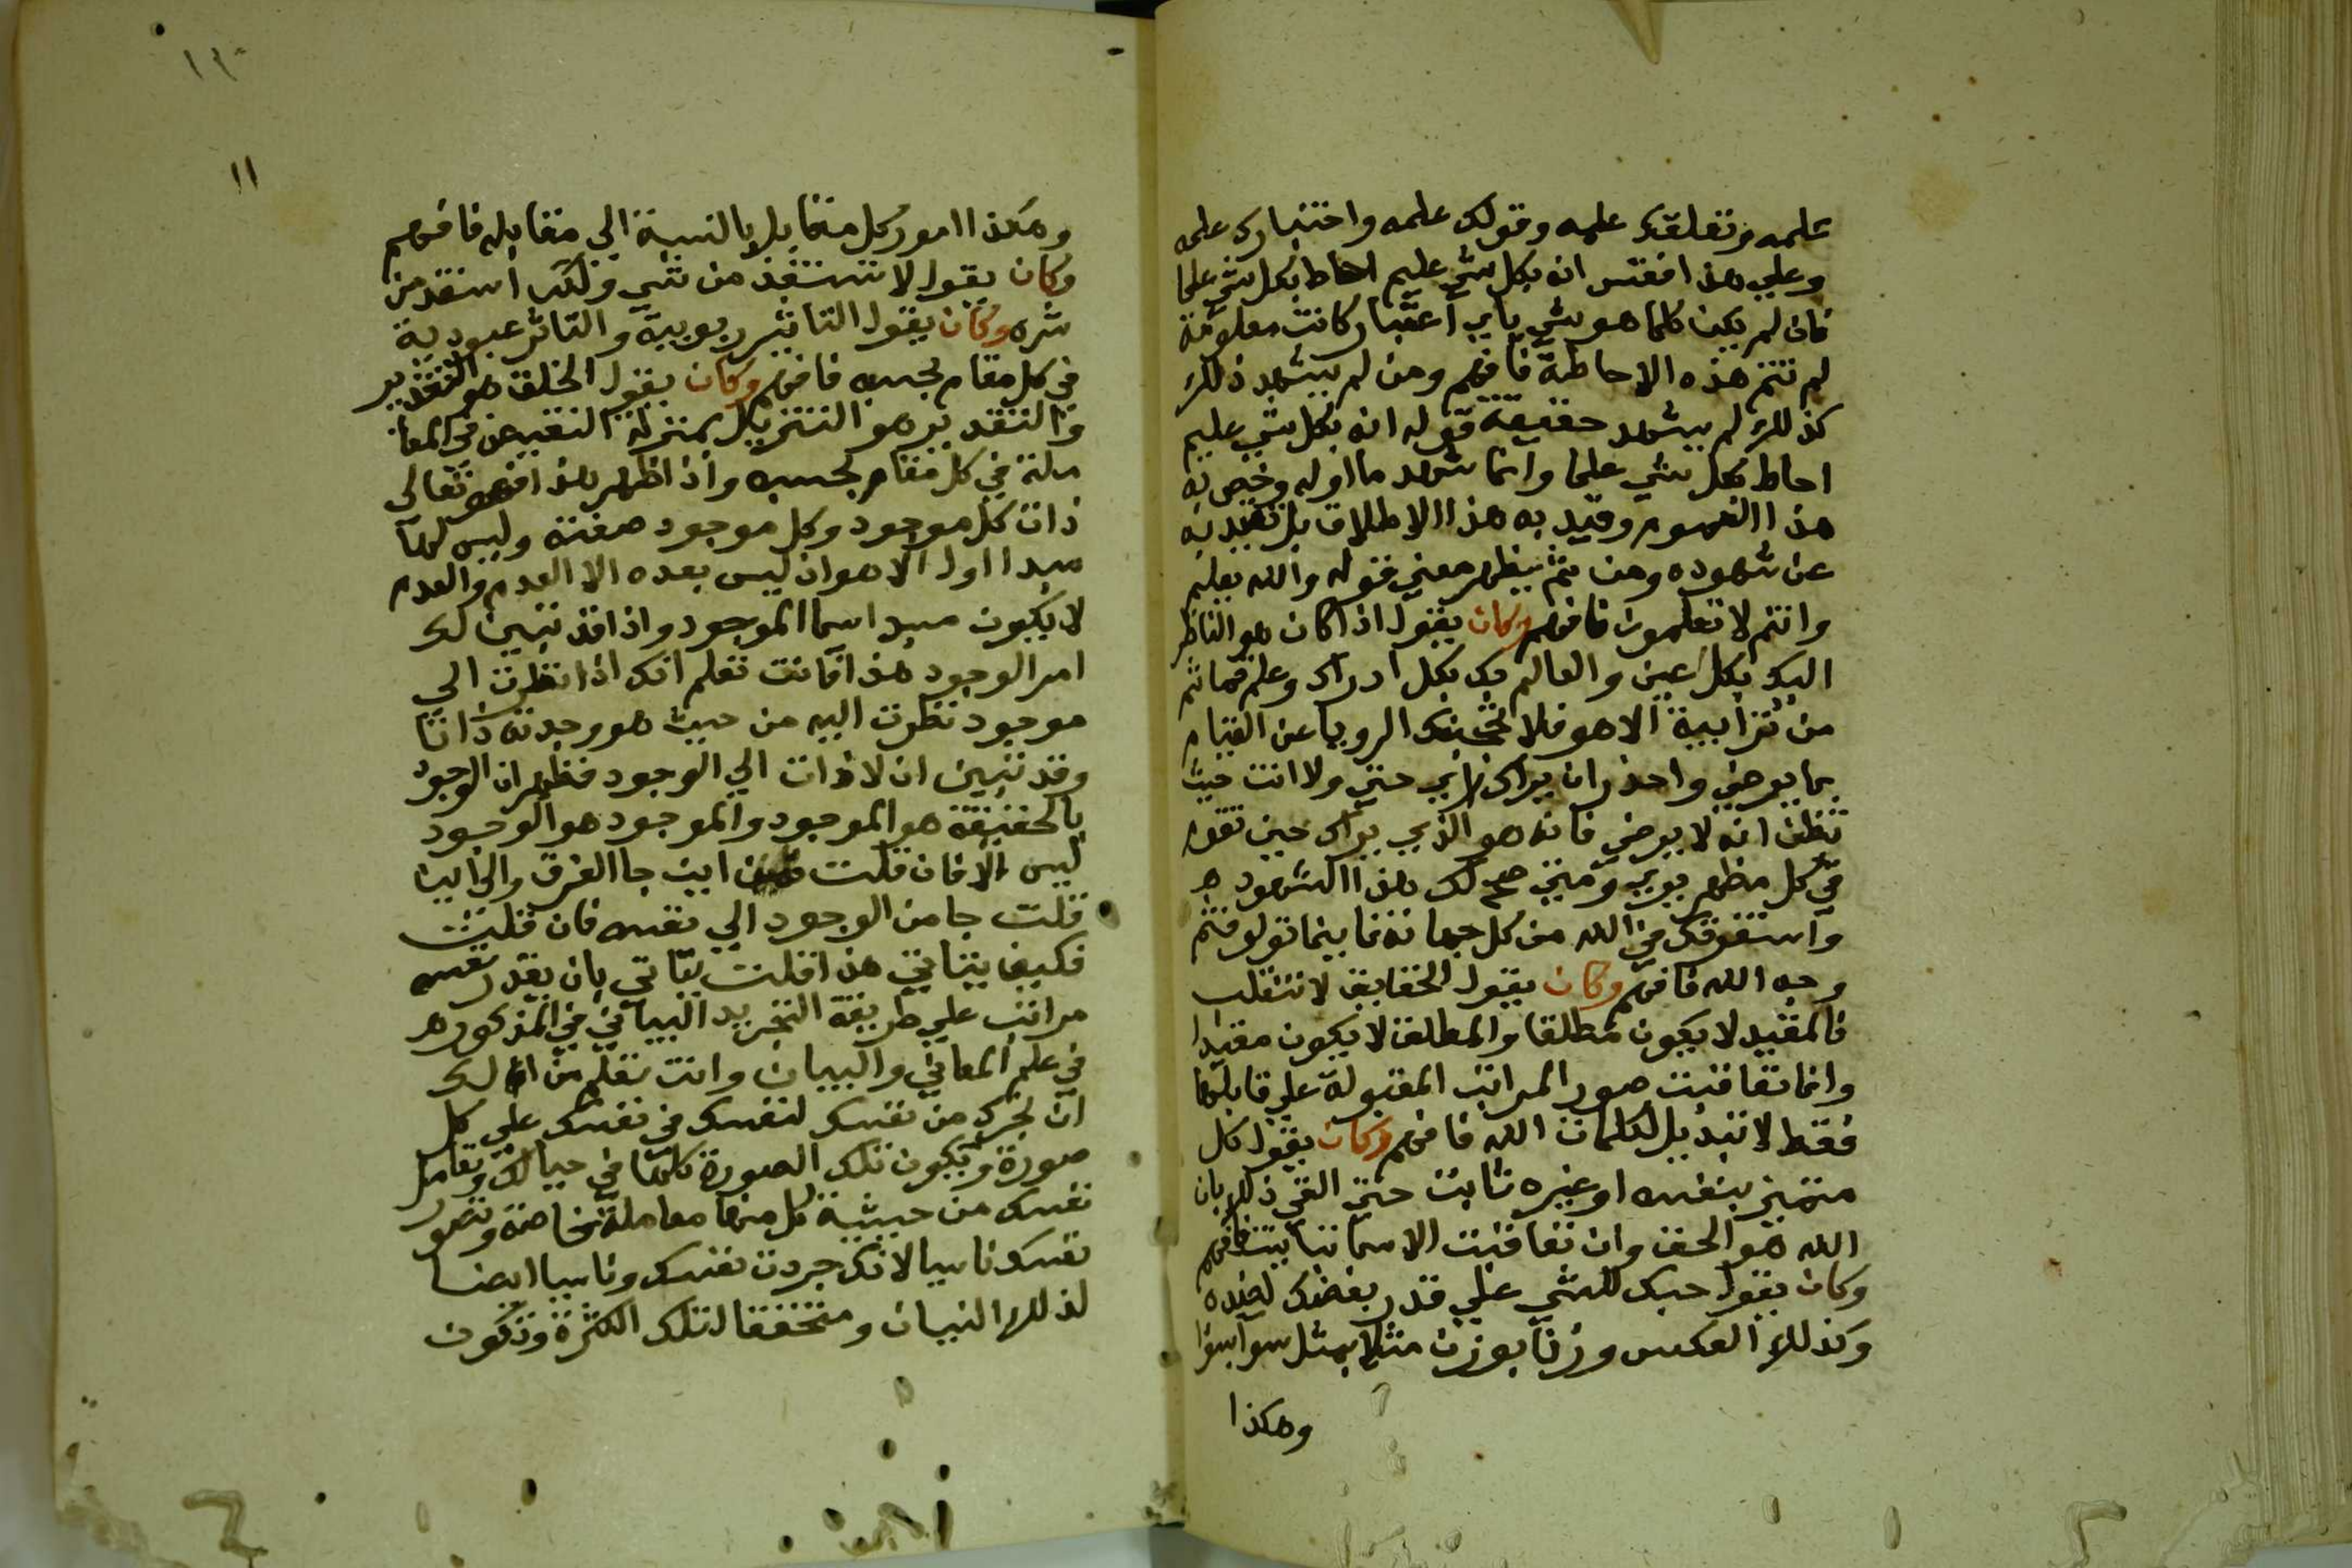 علمه وتعلقك علمه وقولك علمه واختيارك علمه
وعلي هذا افقس انه بكل شي عليم احاط بكل شي علما
فان لم يكن كلما هو شي باي اعتبار كانت معلومة
لم تتم هذه الاحاطة فافهم ومن لم يشهد ذلك
كذلك لم يشهد حقيقة قوله انه بكل شي عليم
احاط بكل شي علما وانما شهد ما اوله وخص به
هذا العموم وقيد به هذا الاطلاق بل تقيد به
عن شهوده ومن ثم يظهر معني قوله والله يعلم
وانتم لا تعلمون فافهم وكان يقول اذا كان هو الناظر
اليك بكل عين والعالم بك بكل ادراك وعلم فما ثم
من تراييه الا هو فلا الرويا عن القيام
بما يرضي واحذر ان يراك راي حتي ولا انت حيث
تظن انه لا يرضي فانه هو الذي يراك حين تقوم
في كل مظهر يري ومتي صح لك هذا الشهود
واستغرقك في الله من كل جهاته فاينما تولو فثم
وجه الله فافهم وكان يقول الحقايق لا تنقلب
فالمقيد لا يكون مطلقا والمطلق لا يكون مقيدا
وانما تعاقبت صور المراتب المقبولة علي قابلها
فقط لا تبديل لكلمات الله فافهم وكان يقول كل
متميز بنفسه او غيره ثابت حتي الغي ذلك بان
الله هو الحق وان تعاقبت الاسما ثبا بيت فافهم
وكان يقول حبك للشي علي قدر بغضك لضده
وكذلك العكس وزنا بوزن مثلا بمثل سوا بسوا
وهكذا
١١
وهكذا امور كل متقابل بالنسبة الي مقابله فافهم
وكان يقول لا تستفذ من شي ولكن استفد من
شره وكان يقول التاثير ربوبية والتاثر عبودية
في كل مقام بحسبه فافهم وكان يقول الخلق هو التقدير
والتقدير هو التنزيل بمنزلة التعيين في المعا
ملة في كل مقام بحسبه واذا ظهر هذا فهو تعالى
ذات كل موجود وكل موجود صفته وليس لها
مبدا اول الا هو اذ ليس بعده الا العدم والعدم
لا يكون مبدا سما الموجود واذا قد تبين لك
امر الوجود هذا فانت تعلم انك اذا نظرت الي
موجود نظرت اليه من حيث هو وجدته ذاتا
وقد تبين ان لا ذات الي الوجود فظهر ان الوجود
بالحقيقة هو الموجود والموجود هو الوجود
ليس الا فان قلت فمن اين جا الفرق والي اين
قلت جا من الوجود الي نفسه فان قلت
فكيف يتاتي هذا قلت يتاتي بان يقدر نفسه
مراتب علي طريقة التجريد البياني في المذكوره
في علم المعاني والبيان وانت تعلم من ان لك
ان تجرد من نفسك لنفسك في نفسك علي كل
صورة وتكون تلك الصورة كلها في حيالك وتعامل
نفسك من حيثية كل منها معاملة خاصة وتصور
نفسك ناسيا لانك جردت نفسك وناسيا ايضا
لذلك النسيان ومتحققا لتلك الكثرة وتكون